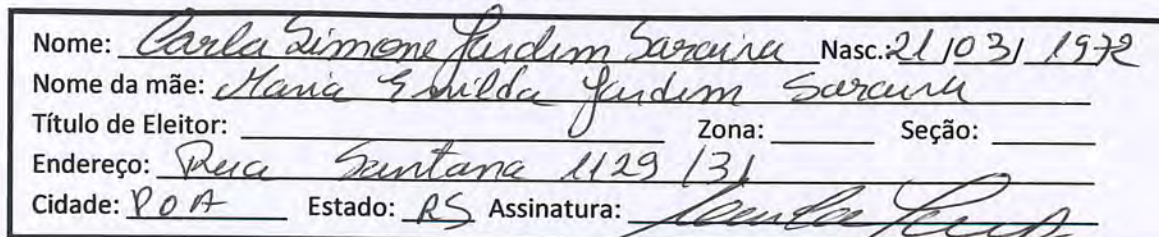 Nome: Carla Simone Jardim Saraiva Nasc.: 21/03/1972
Nome da mãe: Maria Enilda Jardim Saraiva
Título de Eleitor: Zona: Seção:
Endereço: Rua Santana 1129 /31
Cidade: POA Estado: RS Assinatura: